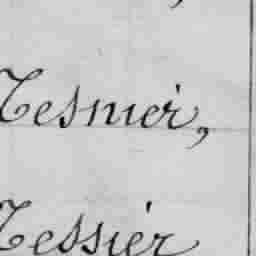 Tesnier,
Tessier